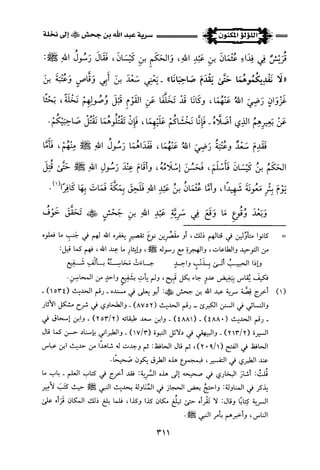 اللؤلؤ المكنون
سرية عبد الله بن جحش ﷺ إلى نخلة
قُرَيْشٌ فِي فِدَاءِ عُثْمَانَ بنِ عَبْدِ اللهِ، وَالحَكَمِ بنِ كَيْسَانَ، فَقَالَ رَسُولُ اللهِ ﷺ:
«لَا نَفْدِيكُمُوهُمَا حَتَّى يَقْدَمَ صَاحِبَانَا» - يَعْنِي سَعْدَ بنَ أَبِي وَقَّاصٍ وَعُتْبَةَ بنَ
غَزْوَانٍ رَضِيَ اللهُ عَنْهُمَا، وكَانَا قَدْ تَخَلَّفَا عَنِ القَوْمِ قَبْلَ وُصُولِهِمْ نَخْلَةَ، بَحْثًا
عَنْ بَعِيرِهِمْ الذِي أضَلَّاهُ - فَإِنَّا نَخْشَاكُمْ عَلَيْهِمَا، فَإِنْ تَقْتُلُوهُمَا نَقْتُلْ صَاحِبَيْكُمْ.
فَقَدِمَ سَعْدٌ وعُتْبَةُ رَضِيَ اللهُ عَنْهُمَا، فَفَدَاهُمَا رَسُولُ اللهِ ﷺ مِنْهُمْ، فَأَمَّا
الحَكَمُ بنُ كَيْسَانَ فَأَسْلَمَ، فَحَسُنَ إِسْلَامُهُ، وأقَامَ عِنْدَ رَسُولِ اللهِ ﷺ حَتَّى قُتِلَ
يَوْمَ بِئْرِ مَعُونَةَ شَهِيدًا، وأمَّا عُثْمَانُ بنُ عَبْدِ اللهِ فَلَحِقَ بِمَكَّةَ فَمَاتَ بِهَا كَافِرًا(١).
وَبَعْدَ وُقُوعِ مَا وَقَعَ فِي سَرِيَّةِ عَبْدِ اللهِ بنِ جَحْشٍ ﷺ تَحَقَّقَ خَوْفُ
= كانوا متأوّلين في قتالهم ذلك، أو مقصِّرين نوع تقصير يغفره الله لهم في جَنبِ ما فعلوه
من التوحيد والطاعات، والهجرة مع رسوله ﷺ، وإيثارِ ما عند الله، فهم كما قيل:
وإذا الحبيبُ أتى بِذَنْبٍ واحدٍ جاءتْ مَحَاسِنُهُ بألْفِ شَفيعِ
فكيف يُقاس ببَغِيضٍ عدوٍ جاء بكل قَبِيحٍ، ولم يأتِ بشَفِيعٍ واحدٍ من المحاسِنِ.
(١) أخرج قِصَّة سرية عبد الله بن جحش ﷺ: أبو يعلى في مسنده - رقم الحديث (١٥٣٤) -
والنسائي في السنن الكبرى - رقم الحديث (٨٧٥٢) - والطحاوي في شرح مشكل الآثار
- رقم الحديث (٤٨٨٠) - (٤٨٨١) - وابن سعد طبقاته (٢٥٣/٢) - وابن إسحاق في
السيرة (٢١٣/٢) - والبيهقي في دلائل النبوة (١٧/٣) - والطبراني بإسناد حسن كما قال
الحافظ في الفتح (٢٠٩/١)، ثم قال الحافظ: ثم وجدت له شاهدًا من حديث ابن عباس
عند الطبري في التفسير، فبمجموع هذه الطرق يكون صحيحًا.
قلتُ: أشارَ البخاري في صحيحه إلى هذه السَّرِية: فقد أخرج في كتاب العلم - باب ما
يذكر في المناولة: واحتجَّ بعضُ الحجازِ في المُناولة بحديث النبي ﷺ حيث كَتَبَ لأميرِ
السرية كِتابًا وقال: لا تَقْرأه حتى تَبلُغَ مكان كذا وكذا، فلما بلغَ ذلك المكان قَرَأه على
الناس، وأخبرهم بأمر النبي ﷺ.
٣١١